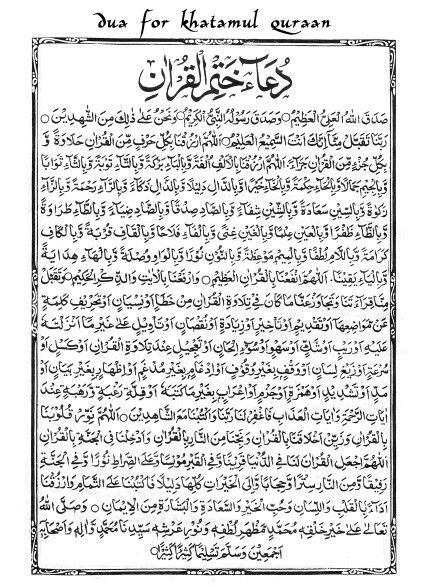 dua for khatamul quraan
دُعَاءُ خَتْمِ الْقُرْاٰنِ
صَدَقَ اللهُ الْعَلِيُّ الْعَظِيْمُ ○ وَصَدَقَ رَسُوْلُهُ النَّبِيُّ الْكَرِيْمُ ○ وَنَحْنُ عَلٰى ذٰلِكَ مِنَ الشّٰهِدِيْنَ ○
رَبَّنَا تَقَبَّلْ مِنَّا اِنَّكَ اَنْتَ السَّمِيْعُ الْعَلِيْمُ ○ اَللّٰهُمَّ ارْزُقْنَا بِكُلِّ حَرْفٍ مِّنَ الْقُرْاٰنِ حَلَاوَةً وَّ
بِكُلِّ جُزْءٍ مِّنَ الْقُرْاٰنِ جَزَآءً. اَللّٰهُمَّ ارْزُقْنَا بِالْاَلِفِ اُلْفَةً وَّبِالْبَآءِ بَرَكَةً وَّبِالتَّآءِ تَوْبَةً وَّبِالثَّآءِ ثَوَابًا
وَّبِالْجِيْمِ جَمَالًا وَّبِالْحَآءِ حِكْمَةً وَّبِالْخَآءِ خَيْرًا وَّبِالدَّالِ دَلِيْلًا وَّبِالذَّالِ ذَكَآءً وَّبِالرَّآءِ رَحْمَةً وَّبِالزَّآءِ
زَكٰوةً وَّبِالسِّيْنِ سَعَادَةً وَّبِالشِّيْنِ شِفَآءً وَّبِالصَّادِ صِدْقًا وَّبِالضَّادِ ضِيَآءً وَّبِالطَّآءِ طَرَاوَةً
وَّبِالظَّآءِ ظَفْرًا وَّبِالْعَيْنِ عِلْمًا وَّبِالْغَيْنِ غِنًى وَّبِالْفَآءِ فَلَاحًا وَّبِالْقَافِ قُرْبَةً وَّبِالْكَافِ
كَرَامَةً وَّبِاللَّامِ لُطْفًا وَّبِالْمِيْمِ مَوْعِظَةً وَّبِالنُّوْنِ نُوْرًا وَّبِالْوَاوِ وُصْلَةً وَّبِالْهَآءِ هِدَايَةً
وَّبِالْيَآءِ يَقِيْنًا. اَللّٰهُمَّ انْفَعْنَا بِالْقُرْاٰنِ الْعَظِيْمِ ○ وَارْفَعْنَا بِالْاٰيٰتِ وَالذِّكْرِ الْحَكِيْمِ ○ وَتَقَبَّلْ
مِنَّا قِرَآءَتَنَا وَتَجَاوَزْ عَنَّا مَا كَانَ فِيْ تِلَاوَةِ الْقُرْاٰنِ مِنْ خَطَإٍ اَوْ نِسْيَانٍ اَوْ تَحْرِيْفِ كَلِمَةٍ
عَنْ مَّوَاضِعِهَا اَوْ تَقْدِيْمٍ اَوْ تَاْخِيْرٍ اَوْ زِيَادَةٍ اَوْ نُقْصَانٍ اَوْ تَاْوِيْلٍ عَلٰى غَيْرِ مَآ اَنْزَلْتَهٗ
عَلَيْهِ اَوْ رَيْبٍ اَوْ شَكٍّ اَوْ سَهْوٍ اَوْ سُوْٓءِ اِلْحَانٍ اَوْ تَعْجِيْلٍ عِنْدَ تِلَاوَةِ الْقُرْاٰنِ اَوْ كَسَلٍ اَوْ
سُرْعَةٍ اَوْ زَيْغِ لِسَانٍ اَوْ وَقْفٍ بِغَيْرِ وُقُوْفٍ اَوْ اِدْغَامٍ بِغَيْرِ مُدْغَمٍ اَوْ اِظْهَارٍ بِغَيْرِ بَيَانٍ اَوْ
مَدٍّ اَوْ تَشْدِيْدٍ اَوْ هَمْزَةٍ اَوْ جَزْمٍ اَوْ اِعْرَابٍ بِغَيْرِ مَا كَتَبَهٗ اَوْ قِلَّةِ رَغْبَةٍ وَّرَهْبَةٍ عِنْدَ
اٰيَاتِ الرَّحْمَةِ وَاٰيَاتِ الْعَذَابِ فَاغْفِرْ لَنَا رَبَّنَا وَاكْتُبْنَا مَعَ الشَّاهِدِيْنَ ○ اَللّٰهُمَّ نَوِّرْ قُلُوْبَنَا
بِالْقُرْاٰنِ وَزَيِّنْ اَخْلَاقَنَا بِالْقُرْاٰنِ وَنَجِّنَا مِنَ النَّارِ بِالْقُرْاٰنِ وَاَدْخِلْنَا فِي الْجَنَّةِ بِالْقُرْاٰنِ
اَللّٰهُمَّ اجْعَلِ الْقُرْاٰنَ لَنَا فِي الدُّنْيَا قَرِيْنًا وَّفِي الْقَبْرِ مُوْنِسًا وَّعَلَى الصِّرَاطِ نُوْرًا وَّفِي الْجَنَّةِ
رَفِيْقًا وَّمِنَ النَّارِ سِتْرًا وَّحِجَابًا وَّاِلَى الْخَيْرَاتِ كُلِّهَا دَلِيْلًا فَاكْتُبْنَا عَلَى التَّمَامِ وَارْزُقْنَا
اَدَآءً بِالْقَلْبِ وَاللِّسَانِ وَحُبِّ الْخَيْرِ وَالسَّعَادَةِ وَالْبَشَارَةِ مِنَ الْاِيْمَانِ ○ وَصَلَّى اللهُ
تَعَالٰى عَلٰى خَيْرِ خَلْقِهٖ مُحَمَّدٍ مَّظْهَرِ لُطْفِهٖ وَنُوْرِ عَرْشِهٖ سَيِّدِنَا مُحَمَّدٍ وَّاٰلِهٖ وَاَصْحَابِهٖ
اَجْمَعِيْنَ وَسَلَّمَ تَسْلِيْمًا كَثِيْرًا كَثِيْرًا ○